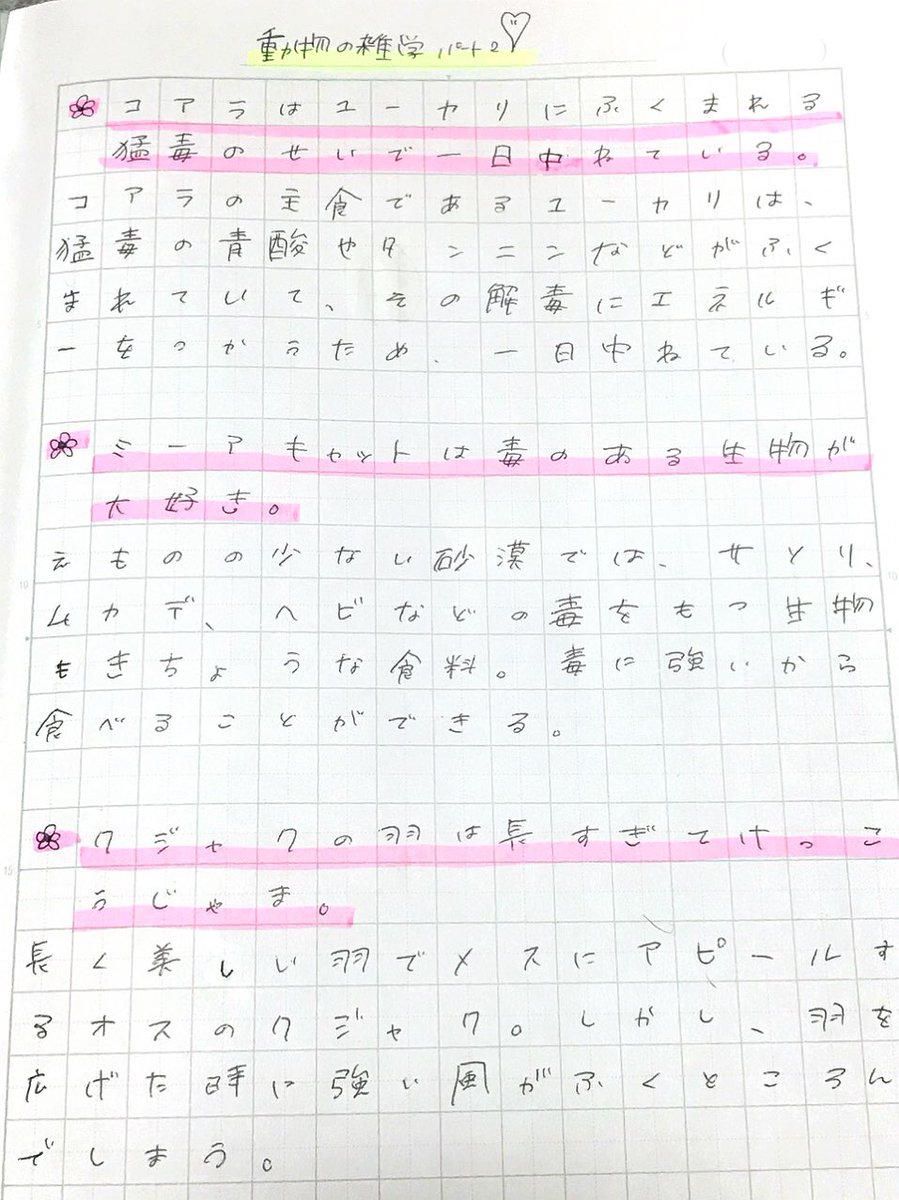 動物の雑学パート2
コアラはユーカリにふくまれる
猛毒のせいで一日中ねている。
コアラの主食であるユーカリは、
猛毒の青酸やタンニンなどがふく
まれていて、その解毒にエネルギ
ーをつかうため、一日中ねている。
ミーアキャットは毒のある生物が
大好き。
えものの少ない砂漠では、サソリ、
ムカデ、ヘビなどの毒をもつ生物
もきちょうな食料。毒に強いから
食べることができる。
クジャクの羽は長すぎてけっこ
うじゃま。
長く美しい羽でメスにアピールす
るオスのクジャク。しかし、羽を
広げた時に強い風がふくところん
でしまう。